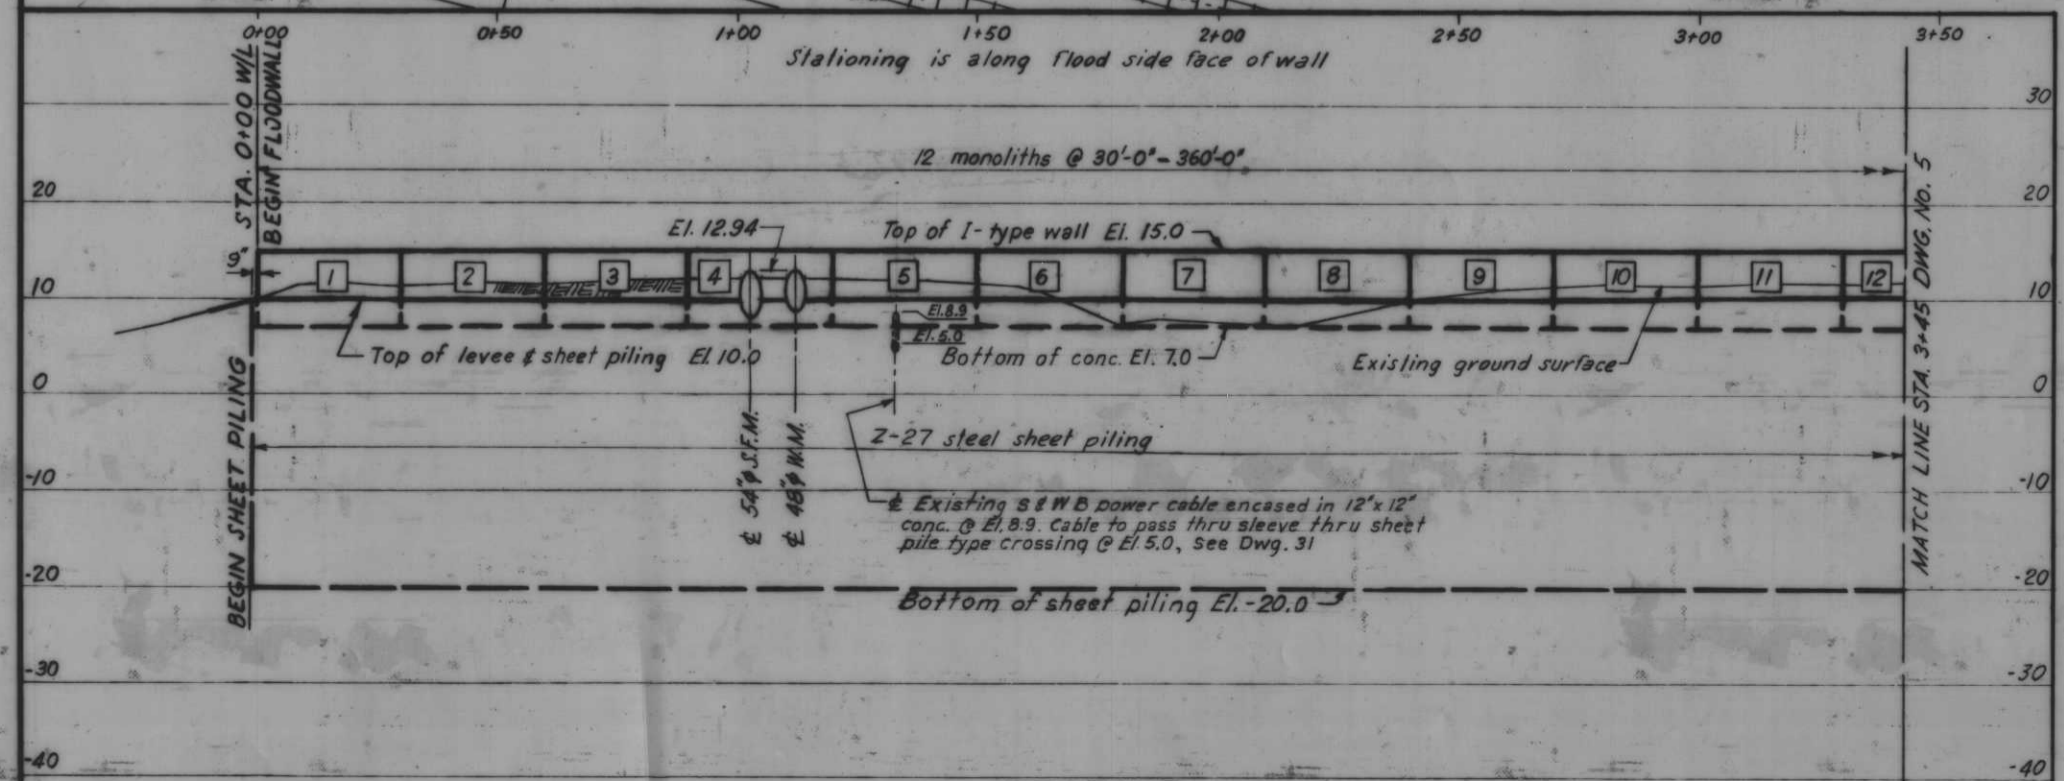 0+00
0+50
1+00
1+50
2+00
2+50
3+00
3+50
Stationing is along flood side face of wall
STA. 0+00 W/L
BEGIN FLOODWALL
30
12 monoliths @ 30'-0" - 360'-0"
20
20
El. 12.94
Top of I-type wall El. 15.0
9"
1
2
3
4
5
6
7
8
9
10
11
12
10
10
El. 8.9
El. 5.0
Top of levee & sheet piling El. 10.0
Bottom of conc. El. 7.0
Existing ground surface
0
0
BEGIN SHEET PILING
℄ 54"φ S.F.M.
℄ 48"φ W.M.
Z-27 steel sheet piling
MATCH LINE STA. 3+45 DWG. No. 5
-10
-10
℄ Existing S & W B power cable encased in 12"x 12"
conc. @ El. 8.9. Cable to pass thru sleeve thru sheet
pile type crossing @ El. 5.0, See Dwg. 31
-20
-20
Bottom of sheet piling El. -20.0
-30
-30
-40
-40